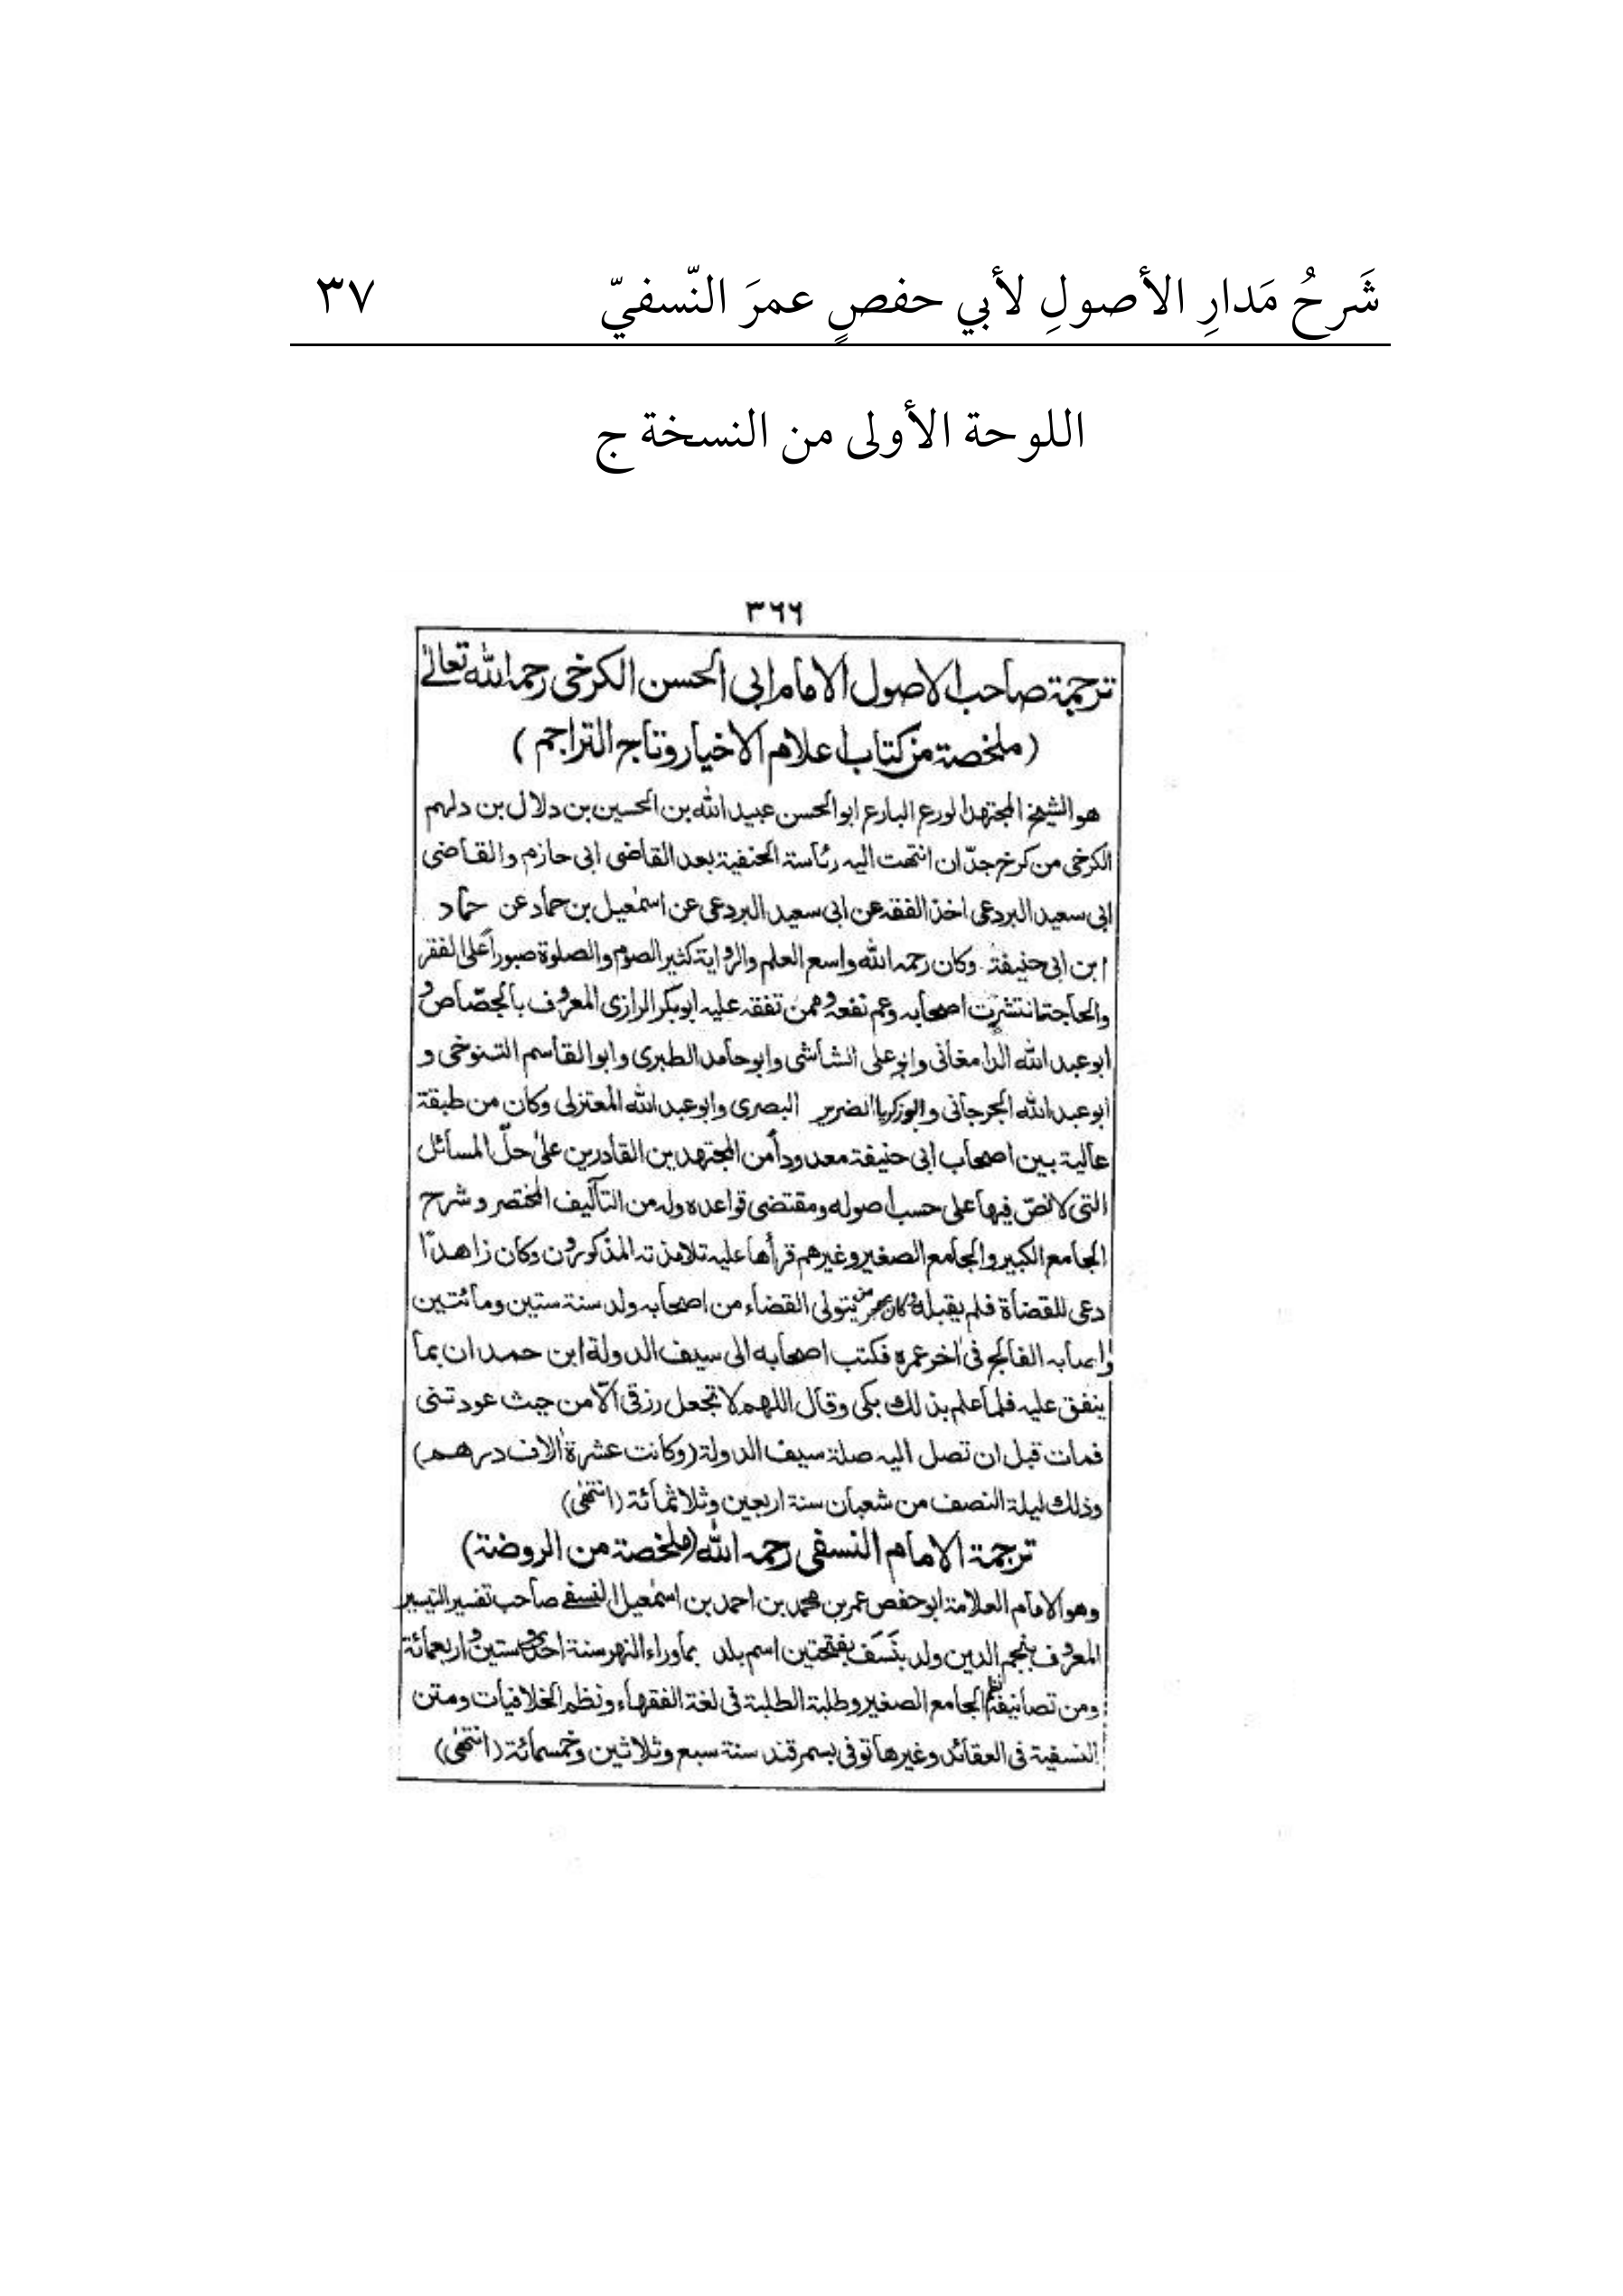 شَرحُ مَدارِ الأصولِ لأبي حفصٍ عمرَ النّسفيّ ٣٧
اللوحة الأولى من النسخة ج
٣٦٦
ترجمة صاحب الاصول الامام ابى الحسن الكرخى رحمه الله تعالى
(ملخصة من كتاب اعلام الاخيار وتاج التراجم)
هو الشيخ المجتهد الورع البارع ابو الحسن عبيد الله بن الحسين بن دلال بن دلهم
الكرخى من كرخ جدّان انتهت اليه رئاسة الحنفية بعد القاضى ابى حازم والقاضى
ابى سعيد البردعى اخذ الفقه عن ابى سعيد البردعى عن اسمٰعيل بن حماد عن حماد
ابن ابى حنيفة وكان رحمه الله واسع العلم والرواية كثير الصوم والصلوة صبورا على الفقر
والحاجة انتشرت اصحابه وعم نفعه وممن تفقه عليه ابوبكر الرازى المعروف بالجصّاص و
ابو عبد الله الدامغانى وابو على الشاشى وابو حامد الطبرى وابو القاسم التنوخى و
ابو عبد الله الجرجانى وابو زكريا الضرير البصرى وابو عبد الله المعتزلى وكان من طبقة
عالية بين اصحاب ابى حنيفة معدودا من المجتهدين القادرين علىٰ حلّ المسائل
التى لا نصّ فيها على حسب اصوله ومقتضى قواعده وله من التآليف المختصر وشرح
الجامع الكبير والجامع الصغير وغيرهم قرأها عليه تلامذته المذكورون وكان زاهدًا
دعى للقضاة فلم يقبله وكان يهجر من يتولى القضاء من اصحابه ولد سنة ستين ومائتين
واصابه الفالج فى اٰخر عمره فكتب اصحابه الى سيف الدولة ابن حمدان بما
ينفق عليه فلما علم بذلك بكى وقال اللهم لا تجعل رزقى الّا من حيث عودتنى
فمات قبل ان تصل اليه صلة سيف الدولة (وكانت عشرة اٰلاف درهم)
وذلك ليلة النصف من شعبان سنة اربعين وثلاثمائة (انتهٰى)
ترجمة الامام النسفى رحمه الله (ملخصة من الروضة)
وهو الامام العلامة ابو حفص عمر بن محمد بن احمد بن اسمٰعيل النسفى صاحب تفسير التيسير
المعروف بنجم الدين ولد بنَسَف بفتحتين اسم بلد بماوراء النهر سنة احدى وستين واربعمائة
ومن تصانيفه نظم الجامع الصغير وطلبة الطلبة فى لغة الفقهاء ونظم الخلافيات ومتن
النسفية فى العقائد وغيرها توفى بسمرقند سنة سبع وثلاثين وخمسمائة (انتهٰى)